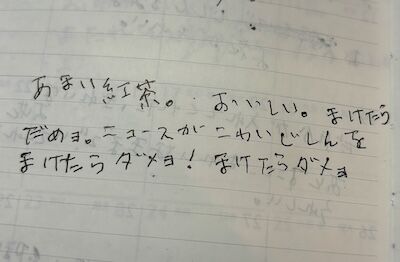 あまい紅茶。おいしい。まけたら
だめョ。ニュースがこわいじしんを
まけたらダメョ！まけたらダメョ